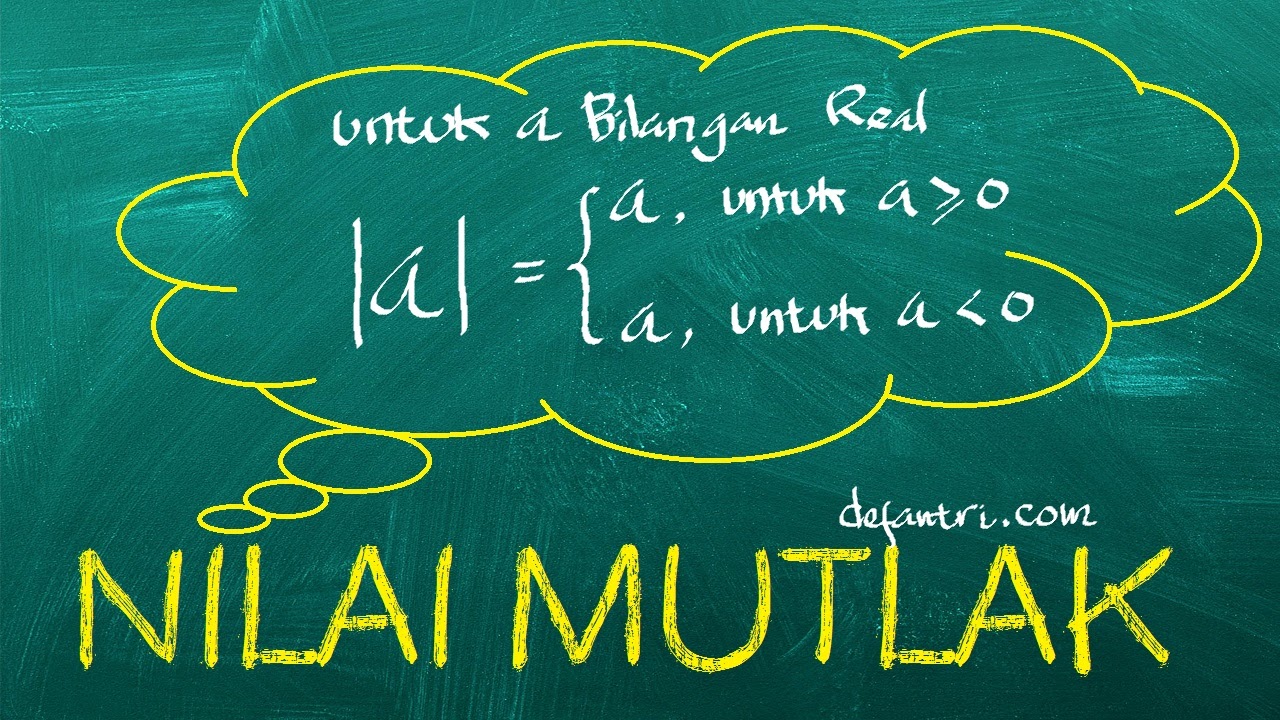 untuk a Bilangan Real
|a| = { a, untuk a ≥ 0
a, untuk a < 0
defantri.com
NILAI MUTLAK